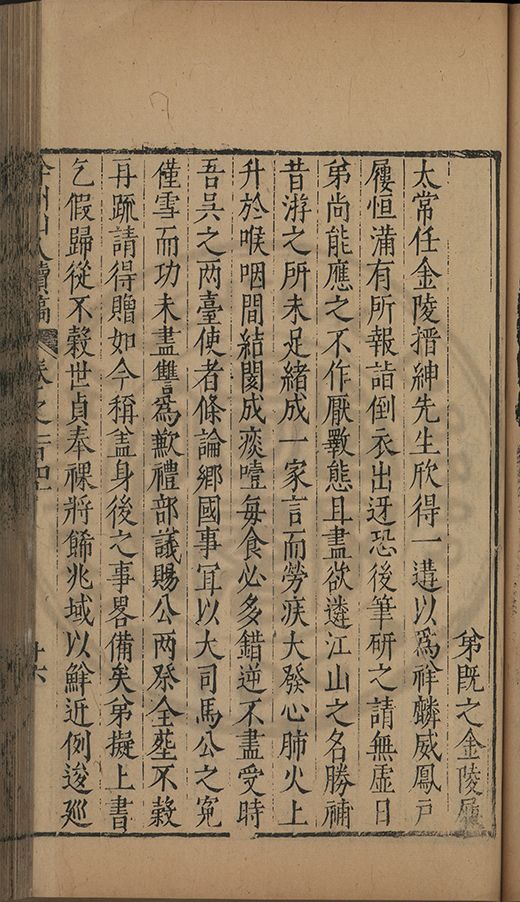 弟既之金陵屬
太常任金陵搢紳先生欣得一遘以爲祥麟威鳳戶
屨恒滿有所報詣倒衣出迓恐後筆研之請無虛日
弟尚能應之不作厭斁態且盡欲遴江山之名勝補
昔游之所未足緒成一家言而勞疾大發心肺火上
升於喉咽間結閡成痰噎每食必多錯逆不盡受時
吾吳之两臺使者條論鄉國事冝以大司馬公之冤
僅雪而功未盡讐爲歉禮部議賜公两祭全塟不榖
再疏請得贈如今稱盖身後之事畧備矣弟擬上書
乞假歸從不榖世貞奉祼將餙兆域以鮮近例逡廵
弇州山人續稿
卷之一百四十